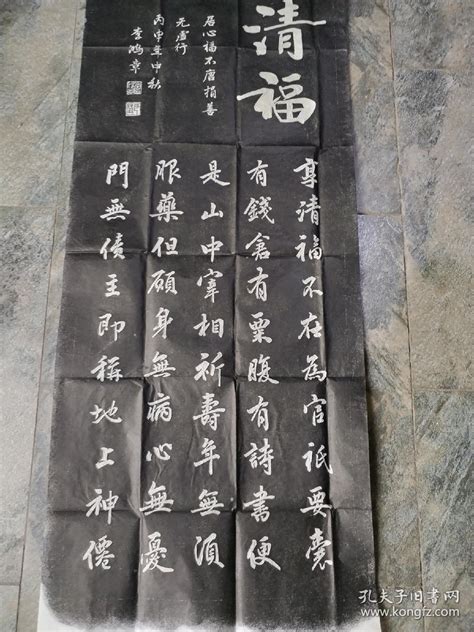 清福
享清福不在為官祇要囊
有錢倉有粟腹有詩書便
是山中宰相祈壽年無須
服藥但願身無病心無憂
門無債主即稱地上神僊
居心福不唐捐善
无虛行
丙申年中秋
李鴻章
孔夫子旧书网
www.kongfz.com